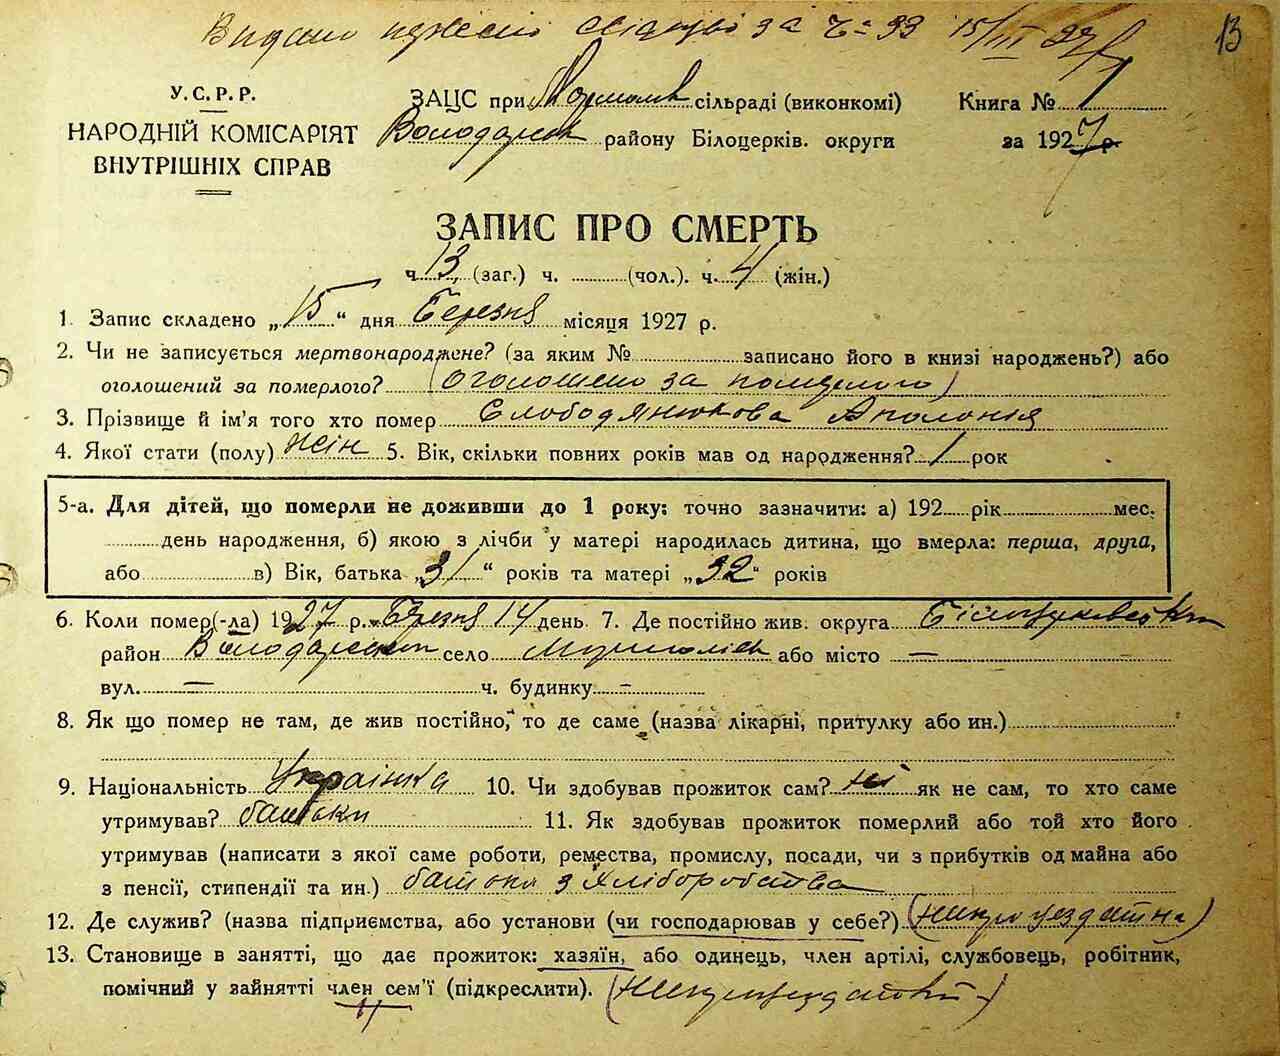 Видано за ч= 33 15/III 27
13
У.С.Р.Р.
НАРОДНІЙ КОМІСАРІЯТ
ВНУТРІШНІХ СПРАВ
ЗАЦС при сільраді (виконкомі)
Володарськ району Білоцерків. округи
Книга № 1
за 1927 р.
ЗАПИС ПРО СМЕРТЬ
ч. 13 (заг.) ч. (чол.). ч. 4 (жін.)
1. Запис складено „15“ дня Березня місяця 1927 р.
2. Чи не записується мертвонароджене? (за яким № записано його в книзі народжень?) або
оголошений за померлого? (оголошено за померлого)
3. Прізвище й ім'я того хто помер Слободянюкова Аполонія
4. Якої статі (полу) жін 5. Вік, скільки повних років мав од народження? 1 рок
5-а. Для дітей, що померли не доживши до 1 року: точно зазначити: а) 192 рік мес.
день народження, б) якою з лічби у матері народилась дитина, що вмерла: перша, друга,
або в) Вік, батька „31“ років та матері „32“ років
6. Коли помер(-ла) 1927 р. Березня 14 день 7. Де постійно жив. округа Білоцерківськ
район Володарськ село або місто —
вул. — ч. будинку –
8. Як що помер не там, де жив постійно, то де саме (назва лікарні, притулку або ин.)
9. Національність Українка 10. Чи здобував прожиток сам? ні як не сам, то хто саме
утримував? батьки 11. Як здобував прожиток померлий або той хто його
утримував (написати з якої саме роботи, ремества, промислу, посади, чи з прибутків од майна або
з пенсії, стипендії та ин.) батьки з хліборобства
12. Де служив? (назва підприємства, або установи (чи господарював у себе?) (непрацездатна)
13. Становище в занятті, що дає прожиток: хазяїн, або одинець, член артілі, службовець, робітник,
помічний у зайнятті член сем'ї (підкреслити).